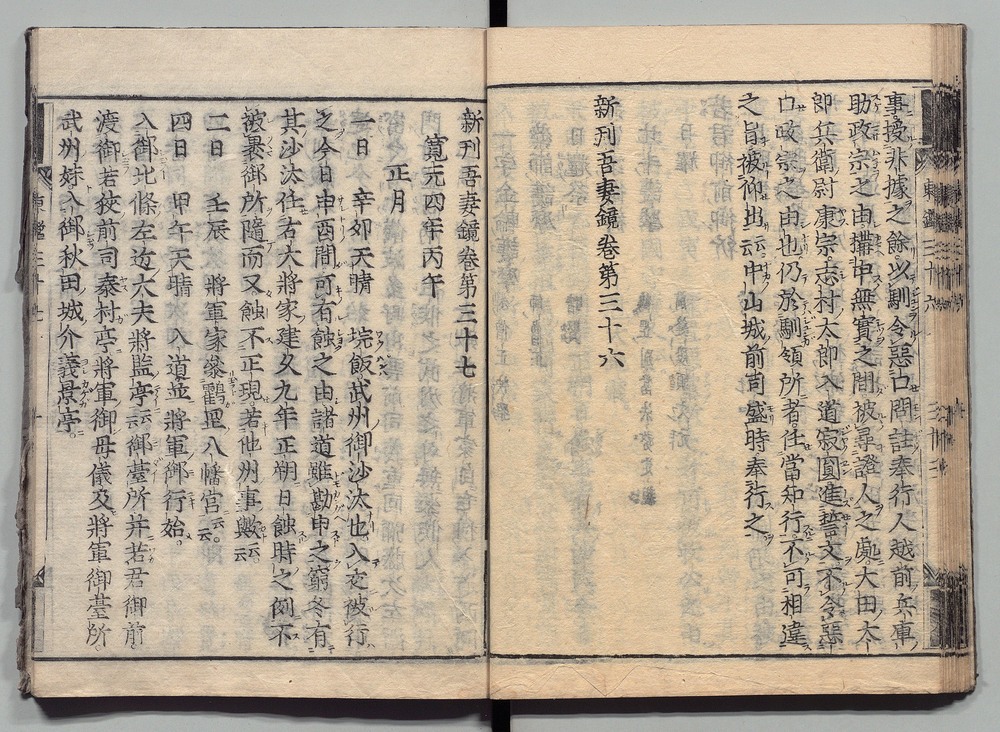 事授非據之餘以馴令惡口問註奉行人越前兵庫
助政宗之由搆申無實之間被尋證人之處大田太
郎兵衛尉康宗志村太郎入道寂圓進誓文不令惡
口政宗之由也仍於馴領所者任當知行不可相違
之旨被仰出云中山城前司盛時奉行之
新刊吾妻鏡卷第三十六
新刊吾妻鏡卷第三十七
寛元四年丙午
正月
一日 辛卯天晴 垸飯武州御沙汰也入夜被行
之今日申酉間可有蝕之由諸道雖勘申之窮冬有
其沙汰任右大將家建久九年正朔日蝕時之例不
被褁御所隨而又蝕不正現若他州事歟云云
二日 壬辰 將軍家參鶴岳八幡宮云云
四日 甲午天晴 入道並將軍御行始
入御北條左近大夫將監亭云云御臺所并若君御前
渡御若狹前司泰村亭將軍御母儀及將軍御臺所
武州妹入御秋田城介義景亭